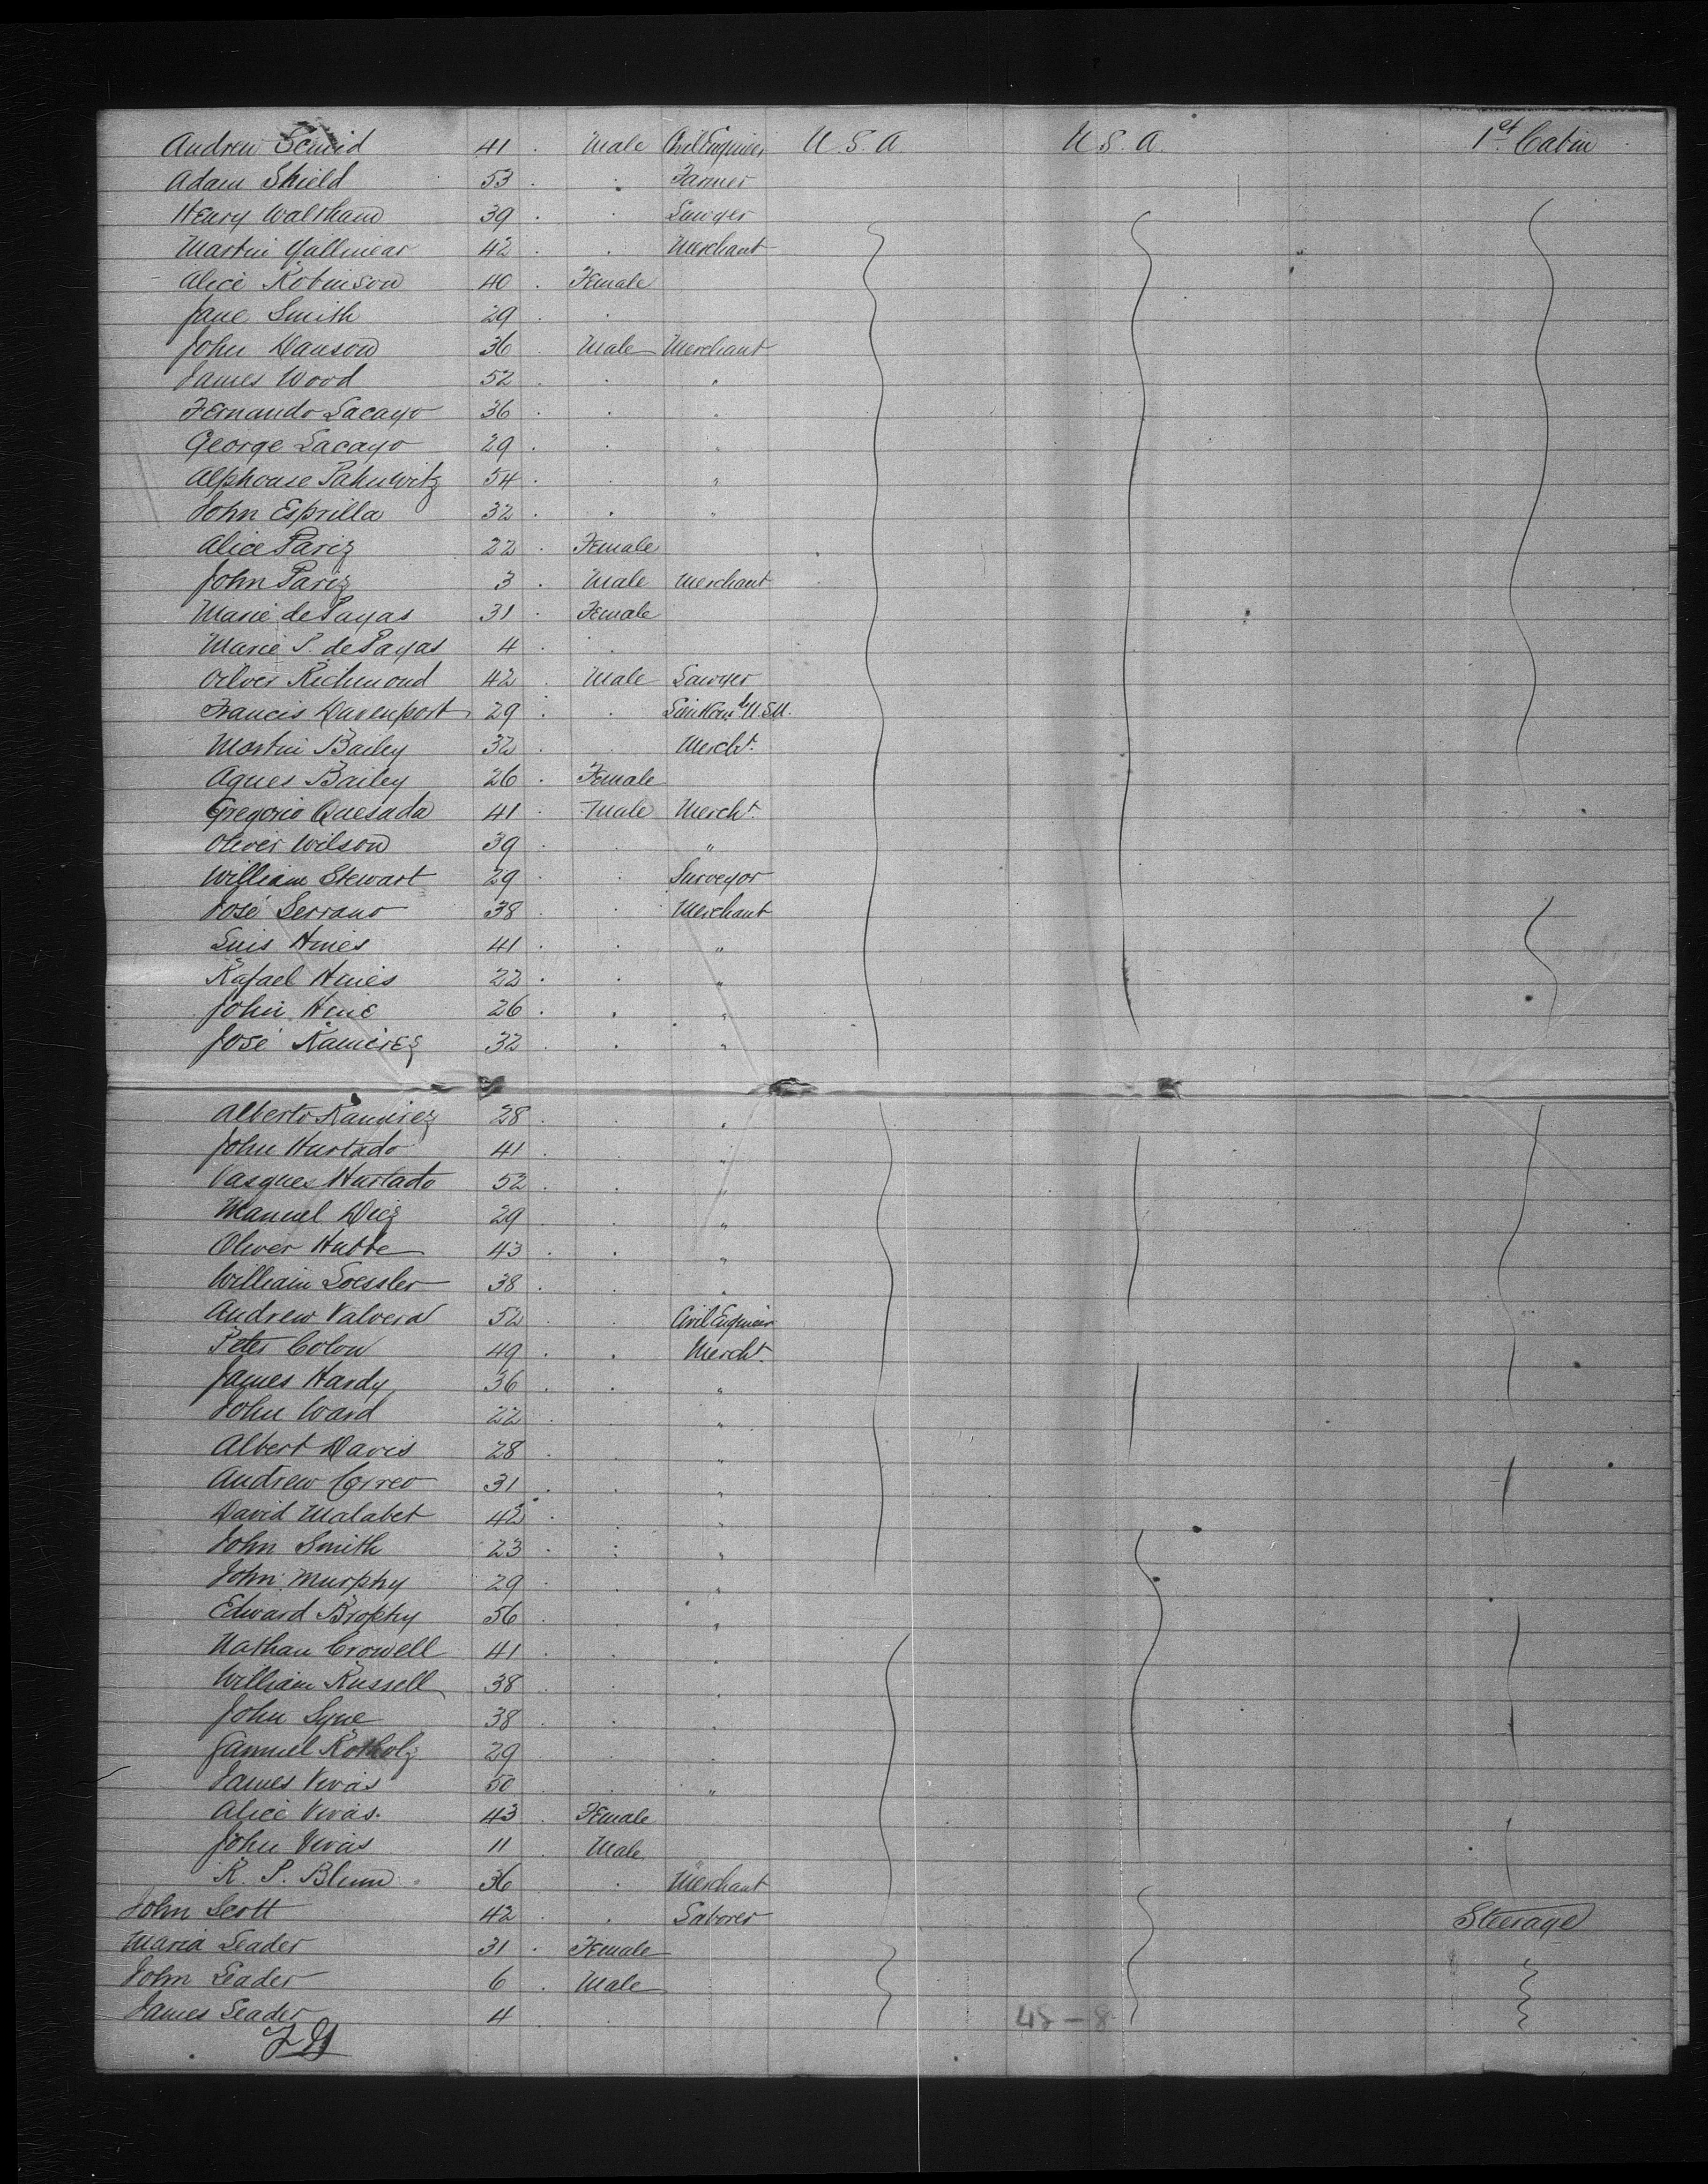 Andrew Scmid 41 Male Civil Engineer U S. A U. S. A. 1st Cabin
Adam Shield 53 . Farmer
Henry Waltham 39 . Lawyer
Martin Gallinear 42 . Merchant
Alice Robinson 40 . Female
Jane Smith 29 .
John Dawson 36 . Male Merchant
James Wood 52 . "
Fernando Lacayo 36 . "
George Lacayo 29 . "
Alphonse 54 . "
John Esprilla 32 . "
Alice Pariz 22 . Female
John Pariz 3 . Male Merchant
Marie de Payas 31 . Female
Marie P. de Payas 4 .
Oliver Richmond 42 . Male Lawyer
Francis Davenport 29 . U.S.N.
Martin Bailey 32 . Mercht.
Agnes Bailey 26 . Female
Gregorio Quesada 41 . Male Mercht.
Oliver Wilson 39 . "
William Stewart 29 . Surveyor
José Serrano 38 . Merchant
Luis Hines 41 . "
Rafael Hines 22 . "
John Hine 26 . "
José Ramirez 32 . "
Alberto Ramirez 28 . "
John Hurtado 41 . "
Vasques Hurtado 52 . "
Manuel Diez 29 . "
Oliver Hutte 43 . "
William Loessler 38 . "
Andrew Valvera 52 . Civil Engineer
Peter Colow 49 . Mercht.
James Hardy 36 . "
John Ward 22 . "
Albert Davis 28 . "
Andrew Correo 31 . "
David Malabet 42 . "
John Smith 23 . "
John Murphy 29 . "
Edward Brophy 56 . "
Nathan Crowell 41 . "
William Russell 38 . "
John Lyne 38 . "
Samuel Rotholz 29 . "
James Vivas 50 . "
Alice Vivas. 43 . Female
John Vivas 11 . Male
R. P. Blenn 36 . Merchant
John Scott 42 . Laborer Steerage
Maria Leader 31 . Female
John Leader 6 . Male
James Leader 4 . 48 - 8